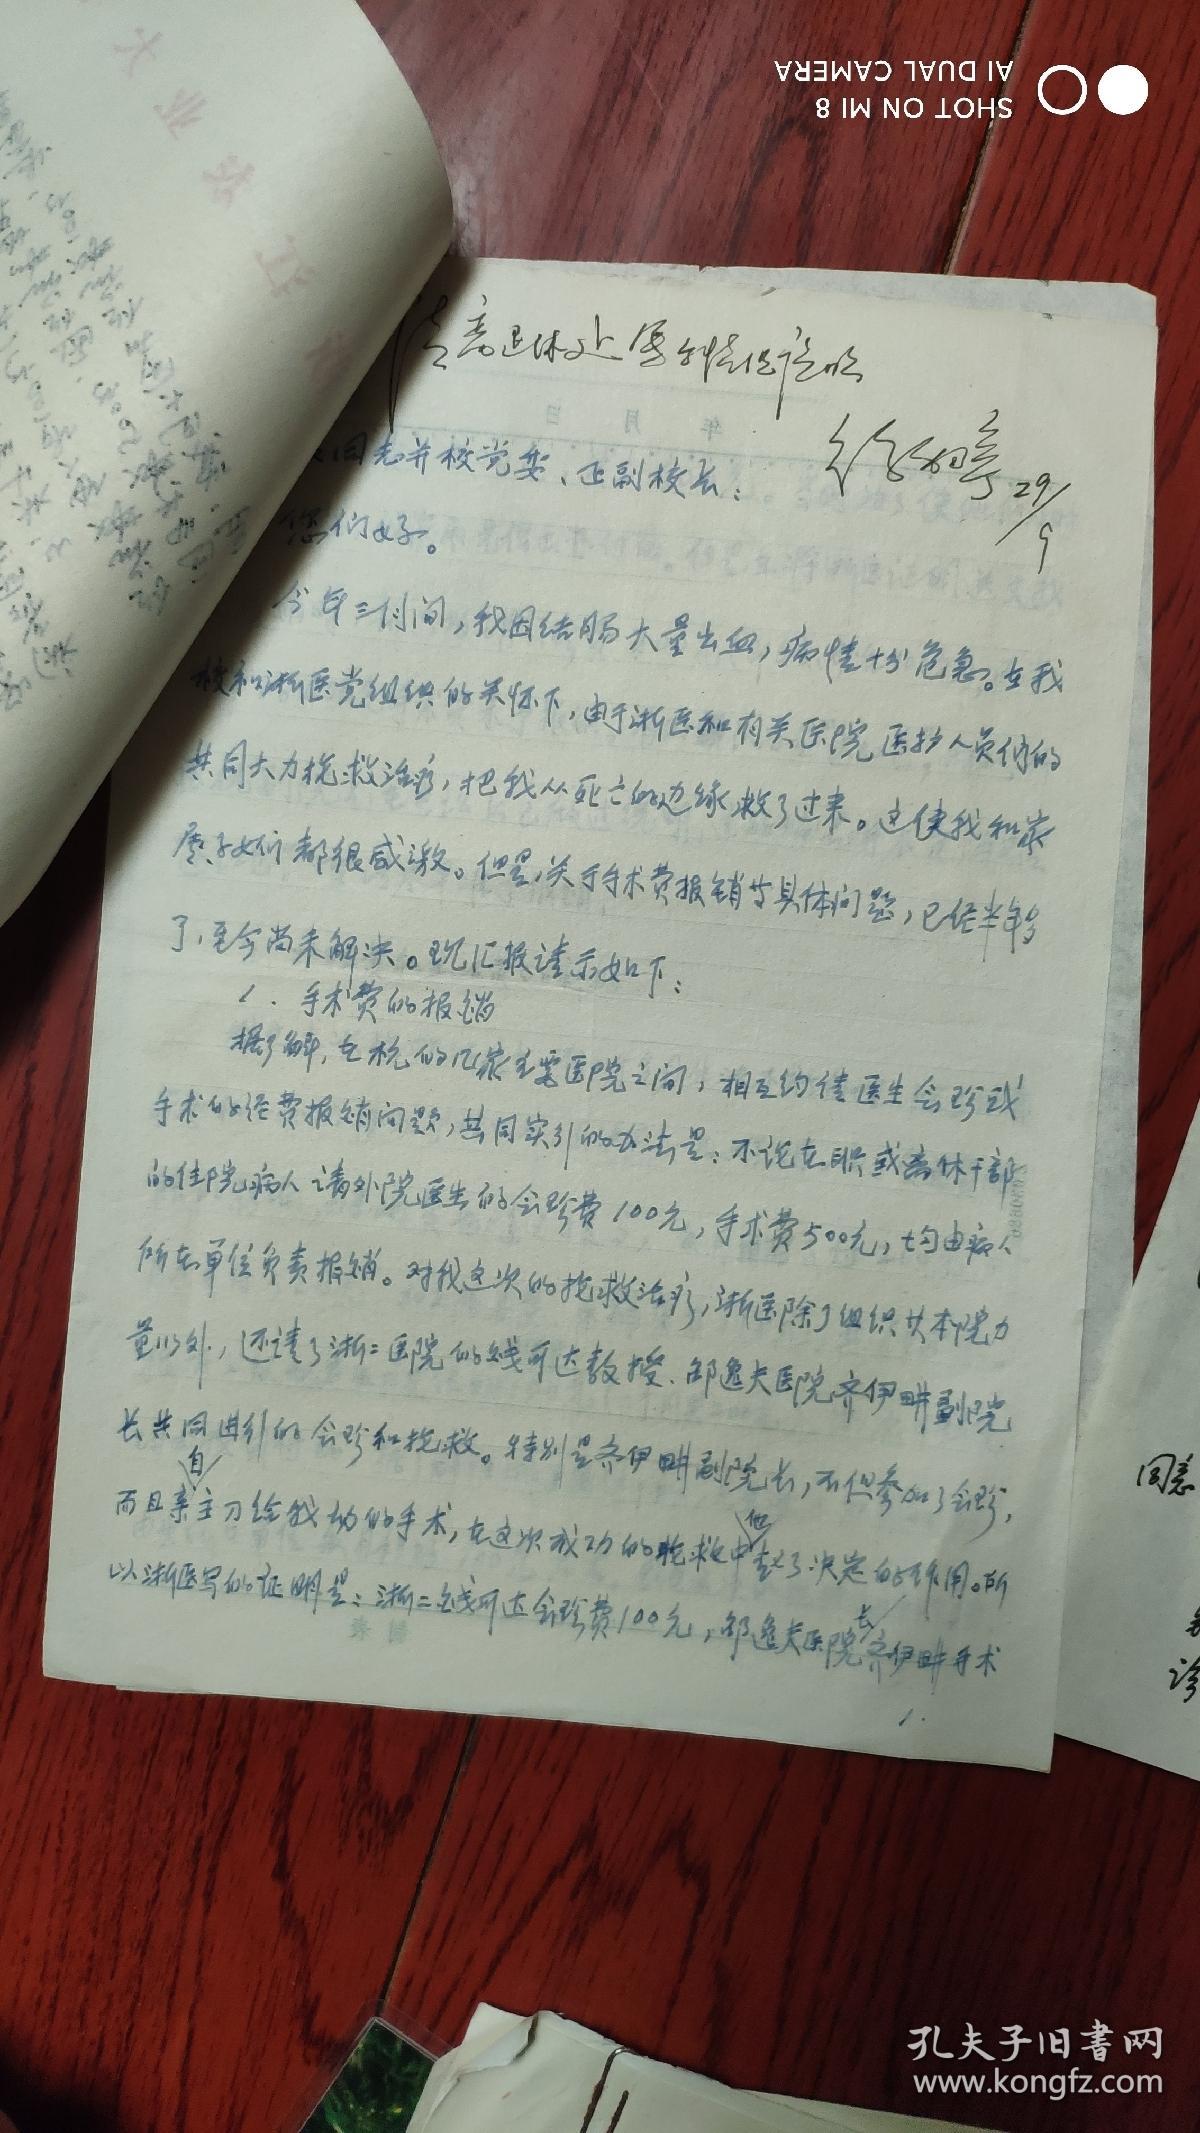 SHOT ON MI 8
AI DUAL CAMERA
请离退休处
29/9
同志并校党委、正副校长:
您们好。
今年三月间,我因结肠大量出血,病情十分危急。在我
校和浙医党组织的关怀下,由于浙医和有关医院医护人员们的
共同大力抢救治疗,把我从死亡的边缘救了过来。这使我和家
属子女们都很感激。但是,关于手术费报销等具体问题,已经半年多
了,至今尚未解决。现汇报请示如下:
1. 手术费的报销
据了解,在杭的几家主要医院之间,相互约请医生会珍或
手术的经费报销问题,共同实行的办法是:不论在职或离休干部
的住院病人请外院医生的会珍费100元,手术费500元,均由病人
所在单位负责报销。对我这次的抢救治疗,浙医除了组织其本院力
量以外,还请了浙二医院的钱可达教授、邵逸夫医院齐伊耕副院
长共同进行的会珍和抢救。特别是齐伊耕副院长,不但参加了会珍,
而且亲自主刀给我动的手术,在这次成功的抢救中他起了决定的作用。所
以浙医写的证明是:浙二钱可达会珍费100元,邵逸夫医院长齐伊耕手术
1.
同意
诊
孔夫子旧书网
www.kongfz.com